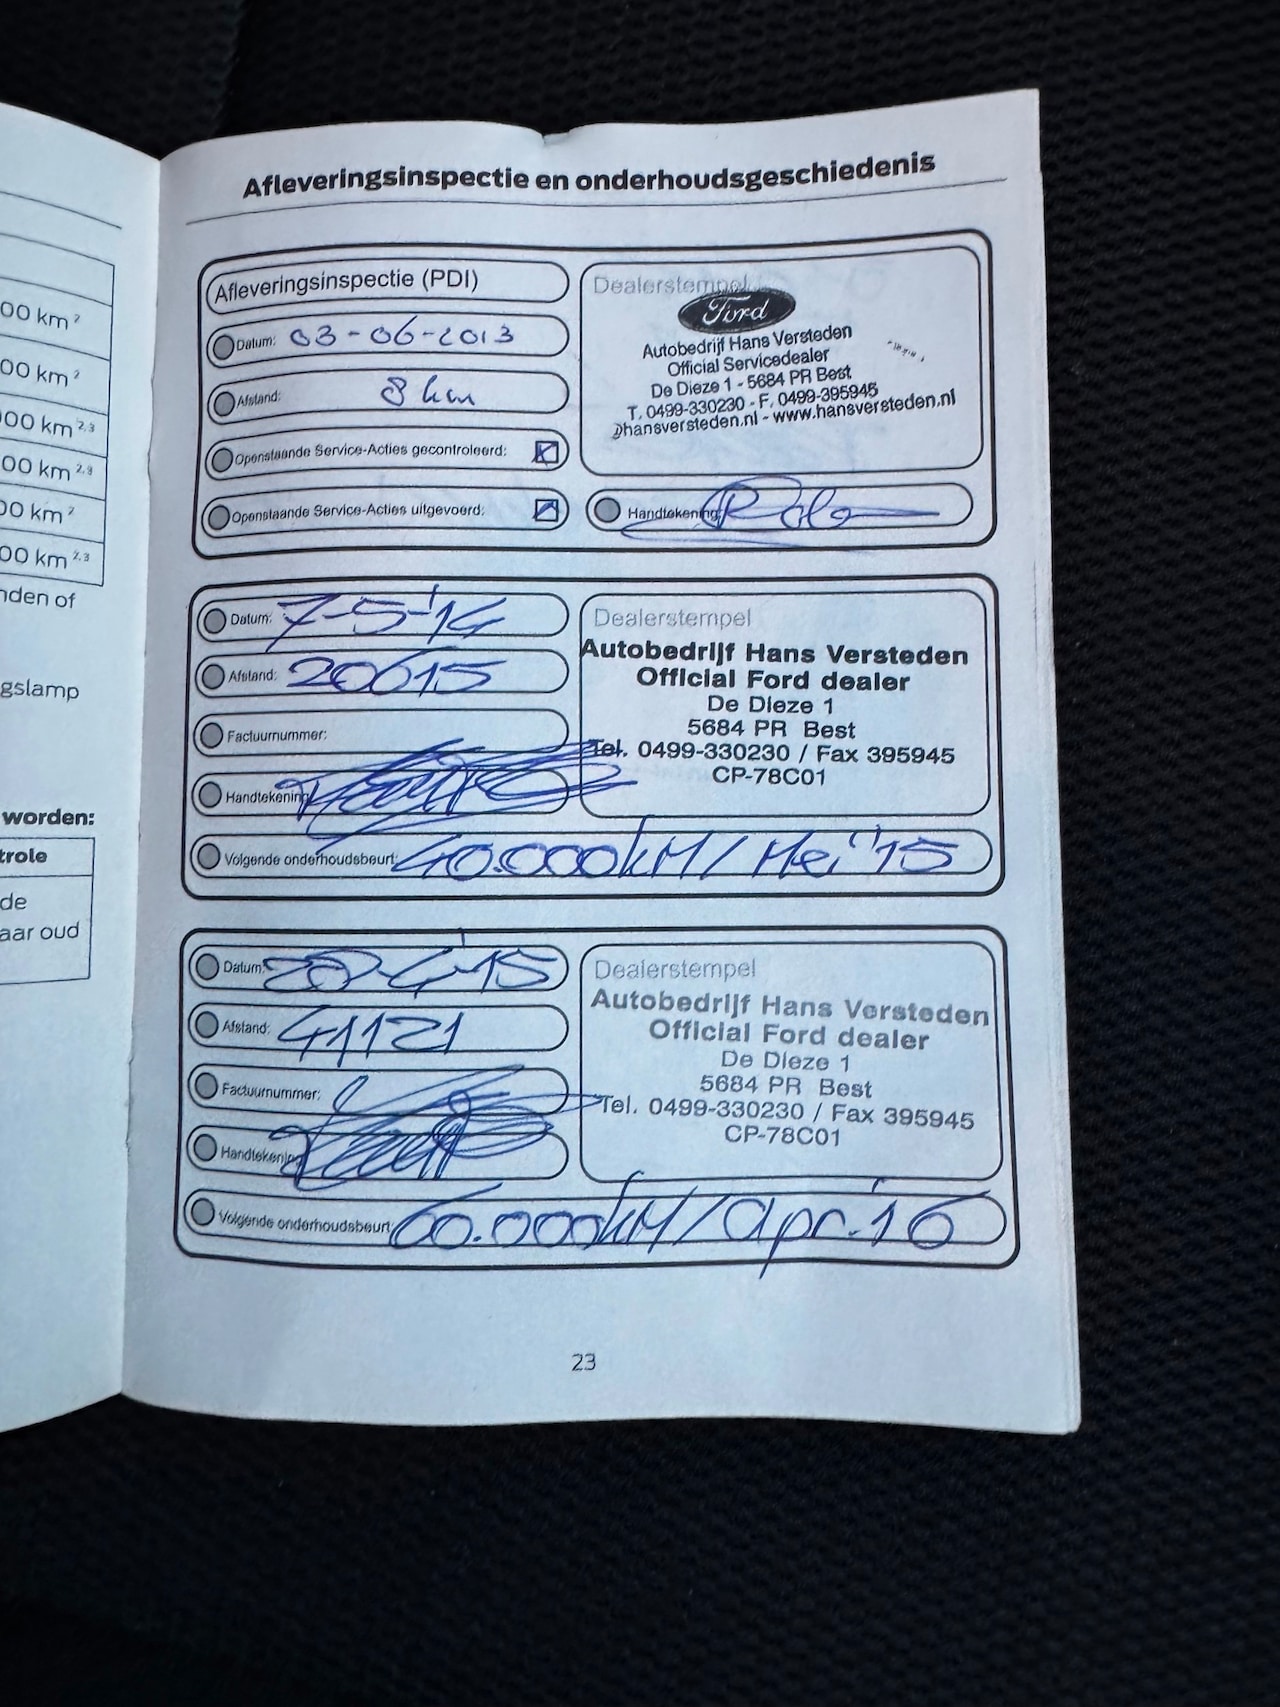 00 km ²
00 km ²
000 km ²·³
00 km ²·³
00 km ²
00 km ²·³
nden of
gslamp
worden:
trole
de
aar oud
Afleveringsinspectie en onderhoudsgeschiedenis
Afleveringsinspectie (PDI)
Datum: 03-06-2013
Afstand: 8 km
Openstaande Service-Acties gecontroleerd:
Openstaande Service-Acties uitgevoerd:
Dealerstempel
Ford
Autobedrijf Hans Versteden
Official Servicedealer
De Dieze 1 - 5684 PR Best
T. 0499-330230 - F. 0499-395945
@hansversteden.nl - www.hansversteden.nl
Handtekening:
Datum: 7-5-'14
Afstand: 20615
Factuurnummer:
Handtekening
Dealerstempel
Autobedrijf Hans Versteden
Official Ford dealer
De Dieze 1
5684 PR Best
Tel. 0499-330230 / Fax 395945
CP-78C01
Volgende onderhoudsbeurt: 40.000kM/Mei '15
Datum: -4-'15
Afstand: 41121
Factuurnummer:
Handtekening
Dealerstempel
Autobedrijf Hans Versteden
Official Ford dealer
De Dieze 1
5684 PR Best
Tel. 0499-330230 / Fax 395945
CP-78C01
Volgende onderhoudsbeurt 60.000kM/apr.'16
23